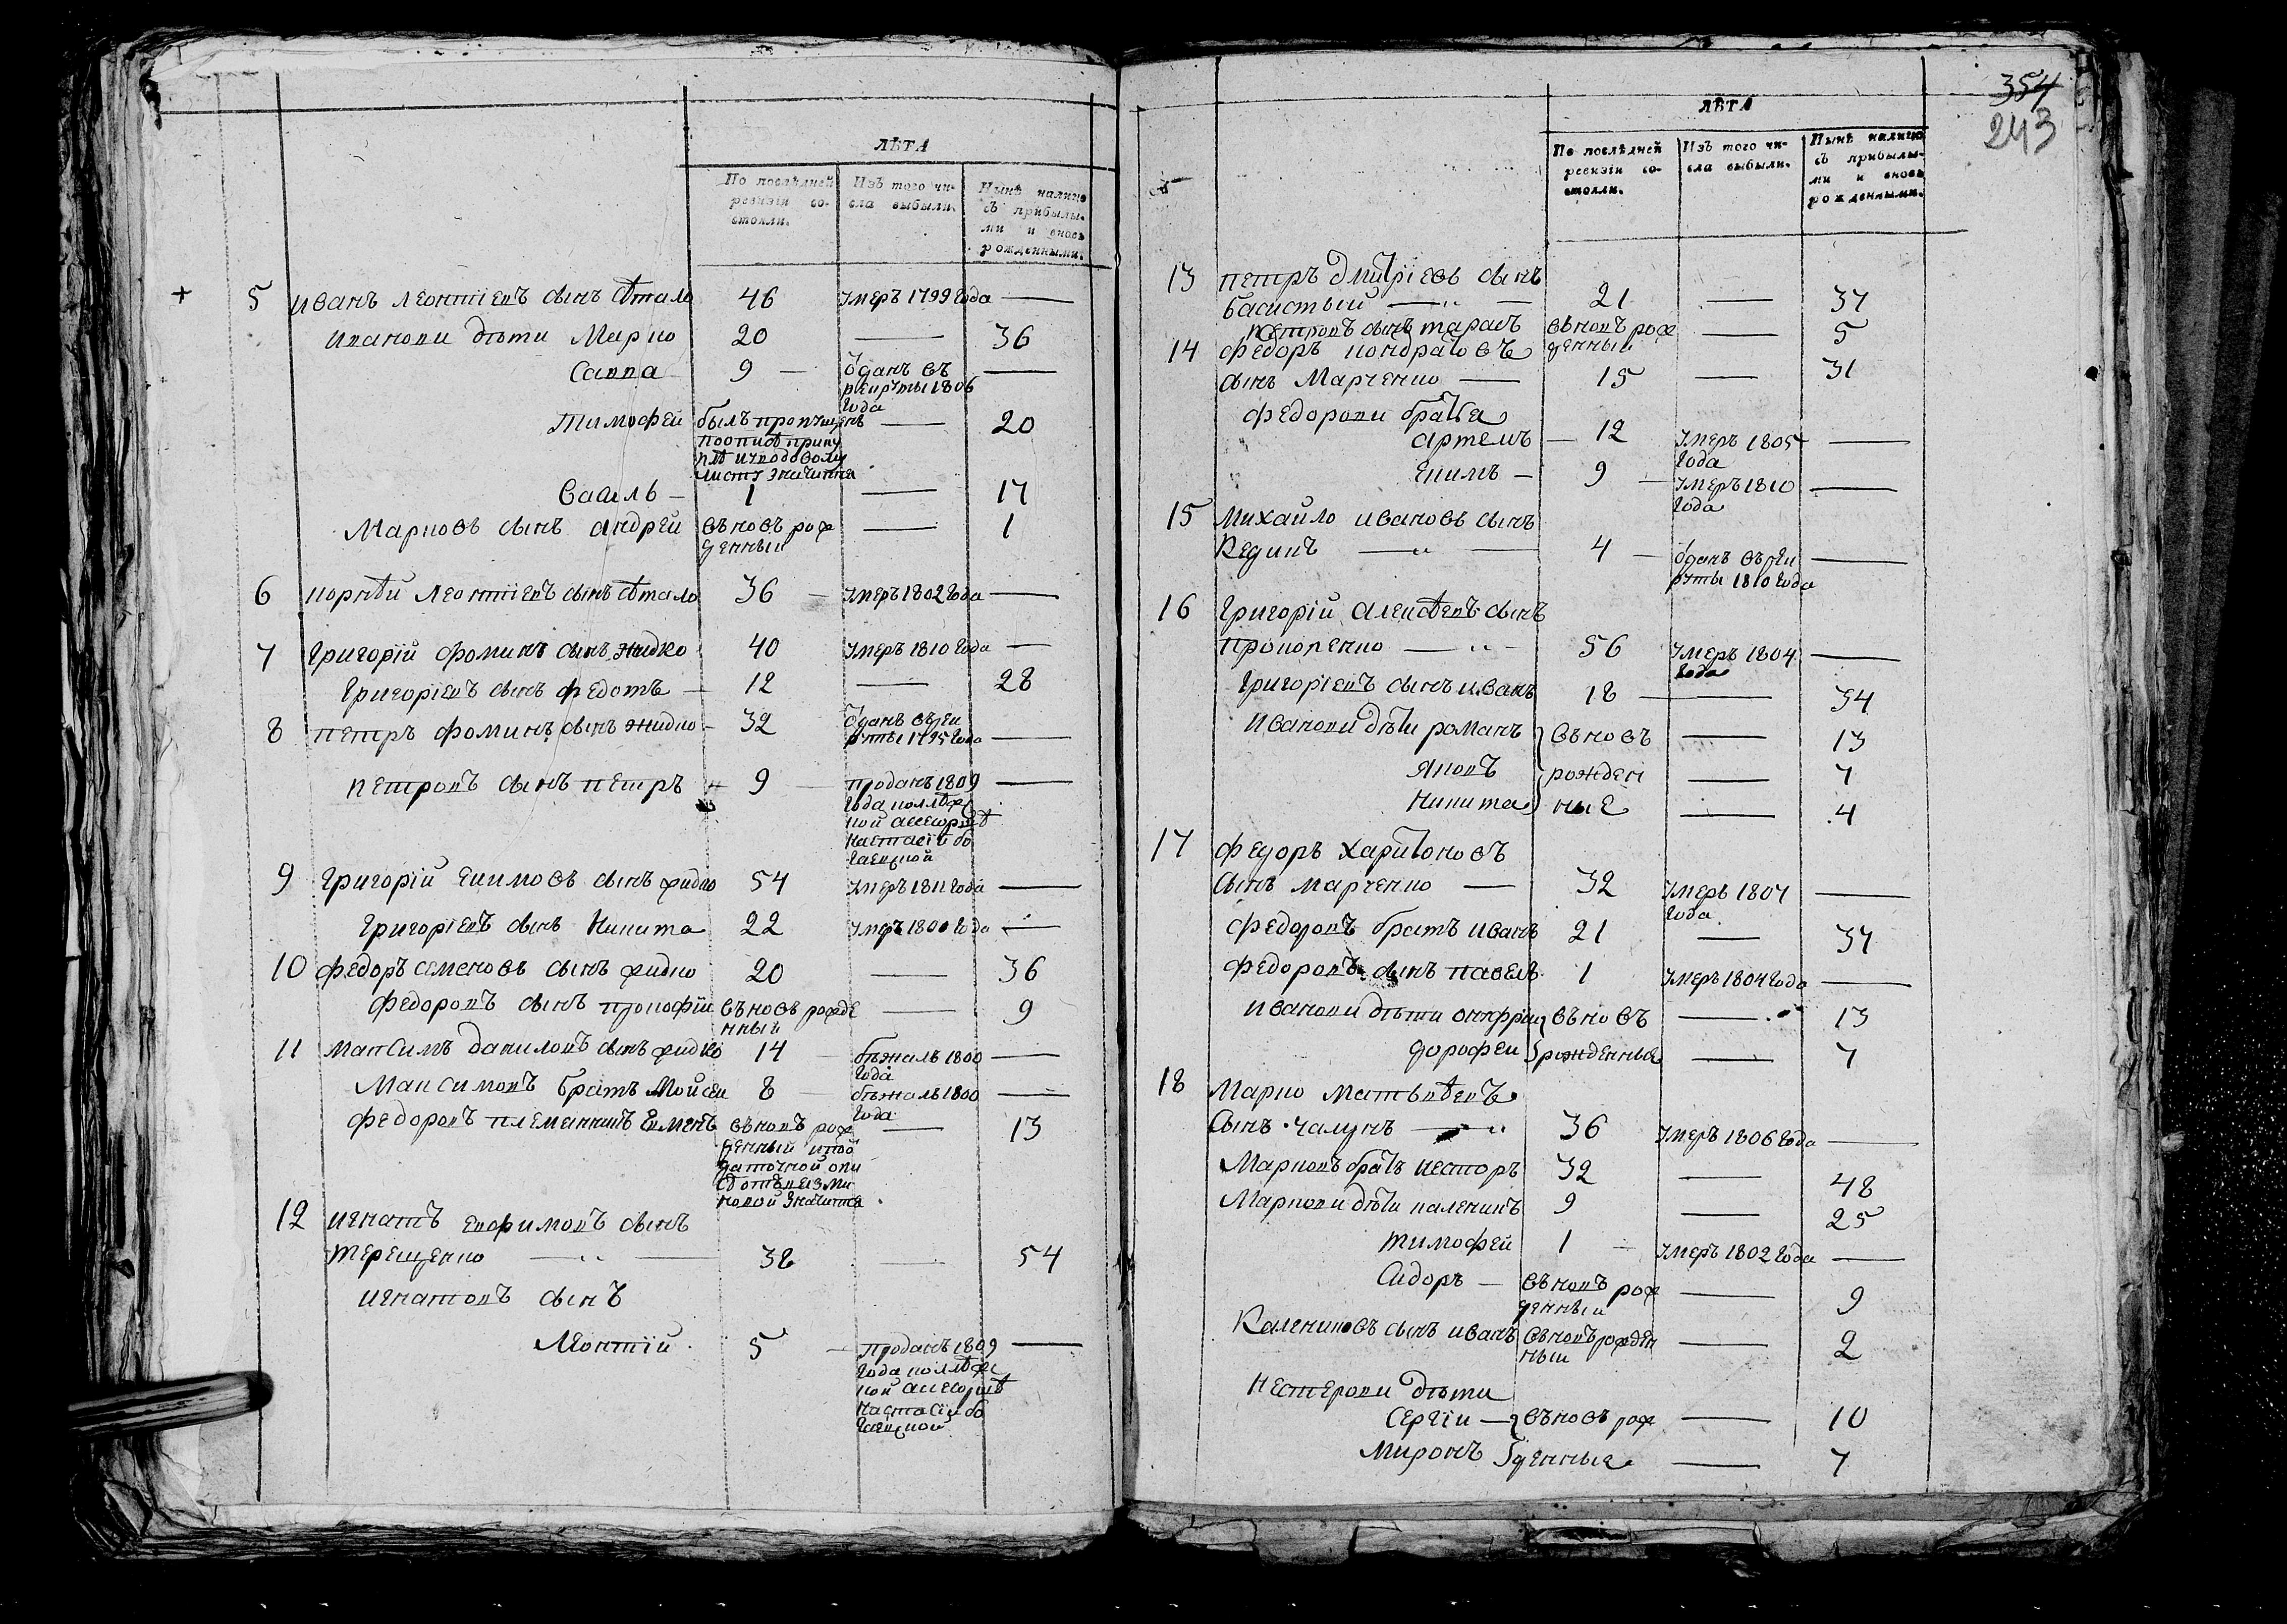 ЛѢТА
По послѣдней ревизіи со-
стояли.
Изъ того чи-
сла выбыли.
Нынѣ налицо
съ прибылы-
ми и вновь
рожденными.
5 Иванъ Леонтіевъ сынъ 46 умеръ 1799 года —
Ивановы дѣти Марко 20 — 36
Савва 9 — отданъ въ рекруты 1806 года —
Тимофей былъ пропущенъ — 20
Василь — 1 — 17
Марковъ сынъ Андрей вновь рожденный — 1
6 Корнѣй Леонтіевъ сынъ 36 — умеръ 1802 года —
7 Григорій Фоминъ сынъ Жидко 40 умеръ 1810 года —
Григоріевъ сынъ Федотъ — 12 — 28
8 Петръ Фоминъ сынъ Жидко — 32 отданъ въ рекруты 1795 года —
Петровъ сынъ Петръ 9 — проданъ 1809 года коллежской ассесоршѣ Настасіи —
9 Григорій Екимовъ сынъ Жидко 54 умеръ 1811 года —
Григоріевъ сынъ Никита 22 умеръ 1800 года —
10 Федоръ Семеновъ сынъ Жидко 20 — 36
Федоровъ сынъ Прокофій вновь рожденный — 9
11 Максимъ Даниловъ сынъ Жидко 14 — бѣжалъ 1800 года —
Максимовъ братъ Мойсей 8 — бѣжалъ 1800 года —
Федоровъ племянникъ вновь рожденный — 13
12 Игнатъ Евфимовъ сынъ
Терещенко — 38 — 54
Игнатовъ сынъ
Леонтій 5 — проданъ 1809 года коллежской ассесоршѣ Настасіи —
354
243
ЛѢТА
По послѣдней
ревизіи со-
стояли.
Изъ того чи-
сла выбыли.
Нынѣ налицо
съ прибылы-
ми и вновь
рожденными.
13 Петръ Дмитріевъ сынъ
Басистый — 21 — 37
Петровъ сынъ Тарасъ вновь рожденный — 5
14 Федоръ Кондратовъ
сынъ Марченко — 15 — 31
Федоровы братья
Артемъ — 12 умеръ 1805 года —
Екимъ — 9 — умеръ 1810 года —
15 Михайло Ивановъ сынъ
Кединъ — 4 — отданъ въ рекруты 1810 года —
16 Григорій Алексѣевъ сынъ
Прокопенко — 56 умеръ 1804 года —
Григоріевъ сынъ Иванъ 18 — 34
Ивановы дѣти Романъ вновь — 13
Яковъ рожден — 7
Никита ные — 4
17 Федоръ Харитоновъ
сынъ Марченко — 32 умеръ 1807 года —
Федоровъ братъ Иванъ 21 — 37
Федоровъ сынъ Павелъ 1 умеръ 1804 года —
Ивановы дѣти Онифрій вновь — 13
Дорофей рожденные — 7
18 Марко Матвѣевъ
сынъ Чалунъ — 36 умеръ 1806 года —
Марковъ братъ Нестеръ 32 — 48
Марковы дѣти Каленикъ 9 — 25
Тимофей 1 — умеръ 1802 года —
Сидоръ — вновь рожденный — 9
Калениковъ сынъ Иванъ вновь рожденный — 2
Нестеровы дѣти
Сергій — вновь рож — 10
Миронъ денные — 7